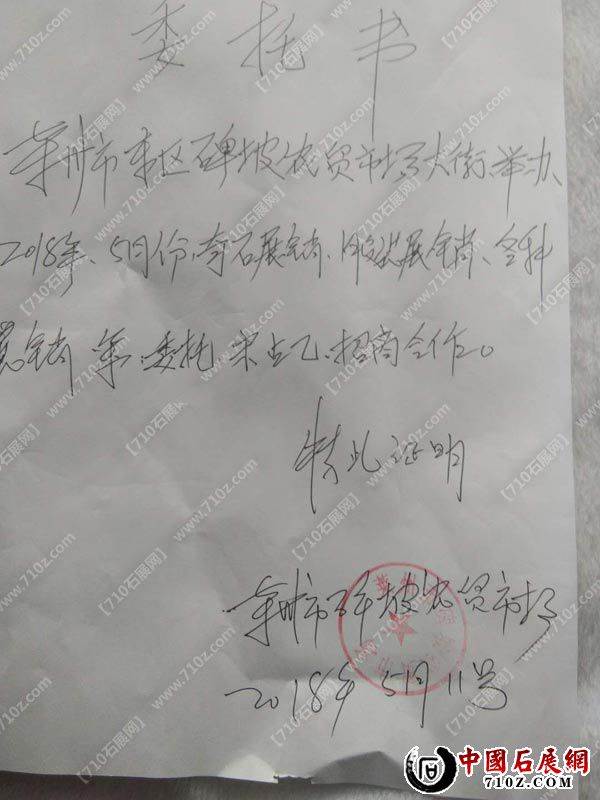 委托书
莱州市東区碑坡农贸市场大街举办、
2018年、5月份、奇石展销、服装展销、各种
展销 第、委托 宋占乙、招商合作。
特此证明
莱州市碑坡农贸市场
2018年 5月11号
中國石展網
710Z.COM
【710石展网】
www.710z.com